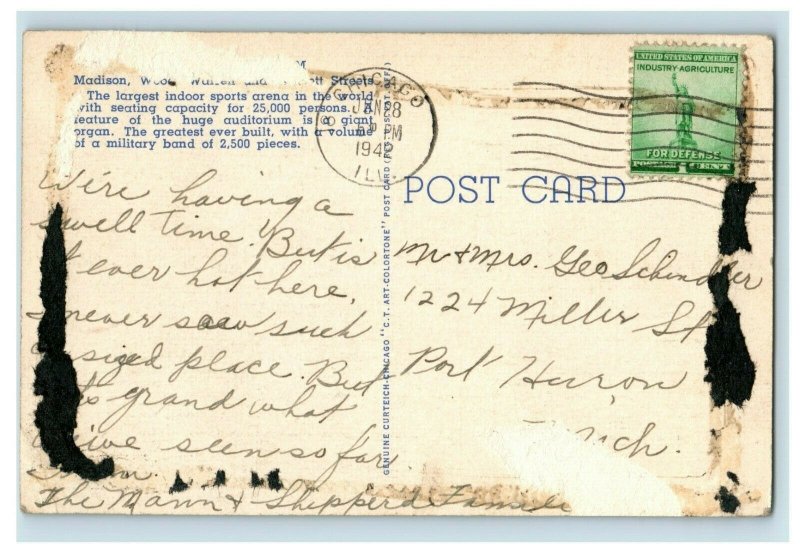 M
Madison, Wood, Warren and Streets
The largest indoor sports arena in the world
with seating capacity for 25,000 persons. A
feature of the huge auditorium is a giant
organ. The greatest ever built, with a volume
of a military band of 2,500 pieces.
CHICAGO
JUN 28
PM
194
ILL.
UNITED STATES OF AMERICA
INDUSTRY-AGRICULTURE
FOR DEFENSE
POSTAGE 1 CENT
POST CARD
GENUINE CURTEICH-CHICAGO "C.T. ART-COLORTONE" POST CARD (REG. U.S. PAT. OFF.)
We're having a
swell time. But is
it ever hot here.
I never saw such
a sized place. But
it's grand what
we've seen so far.
From
The Mann & Shepperd Famile
Mr & Mrs. Geo Schindler
1224 Miller St
Port Huron
Mich.